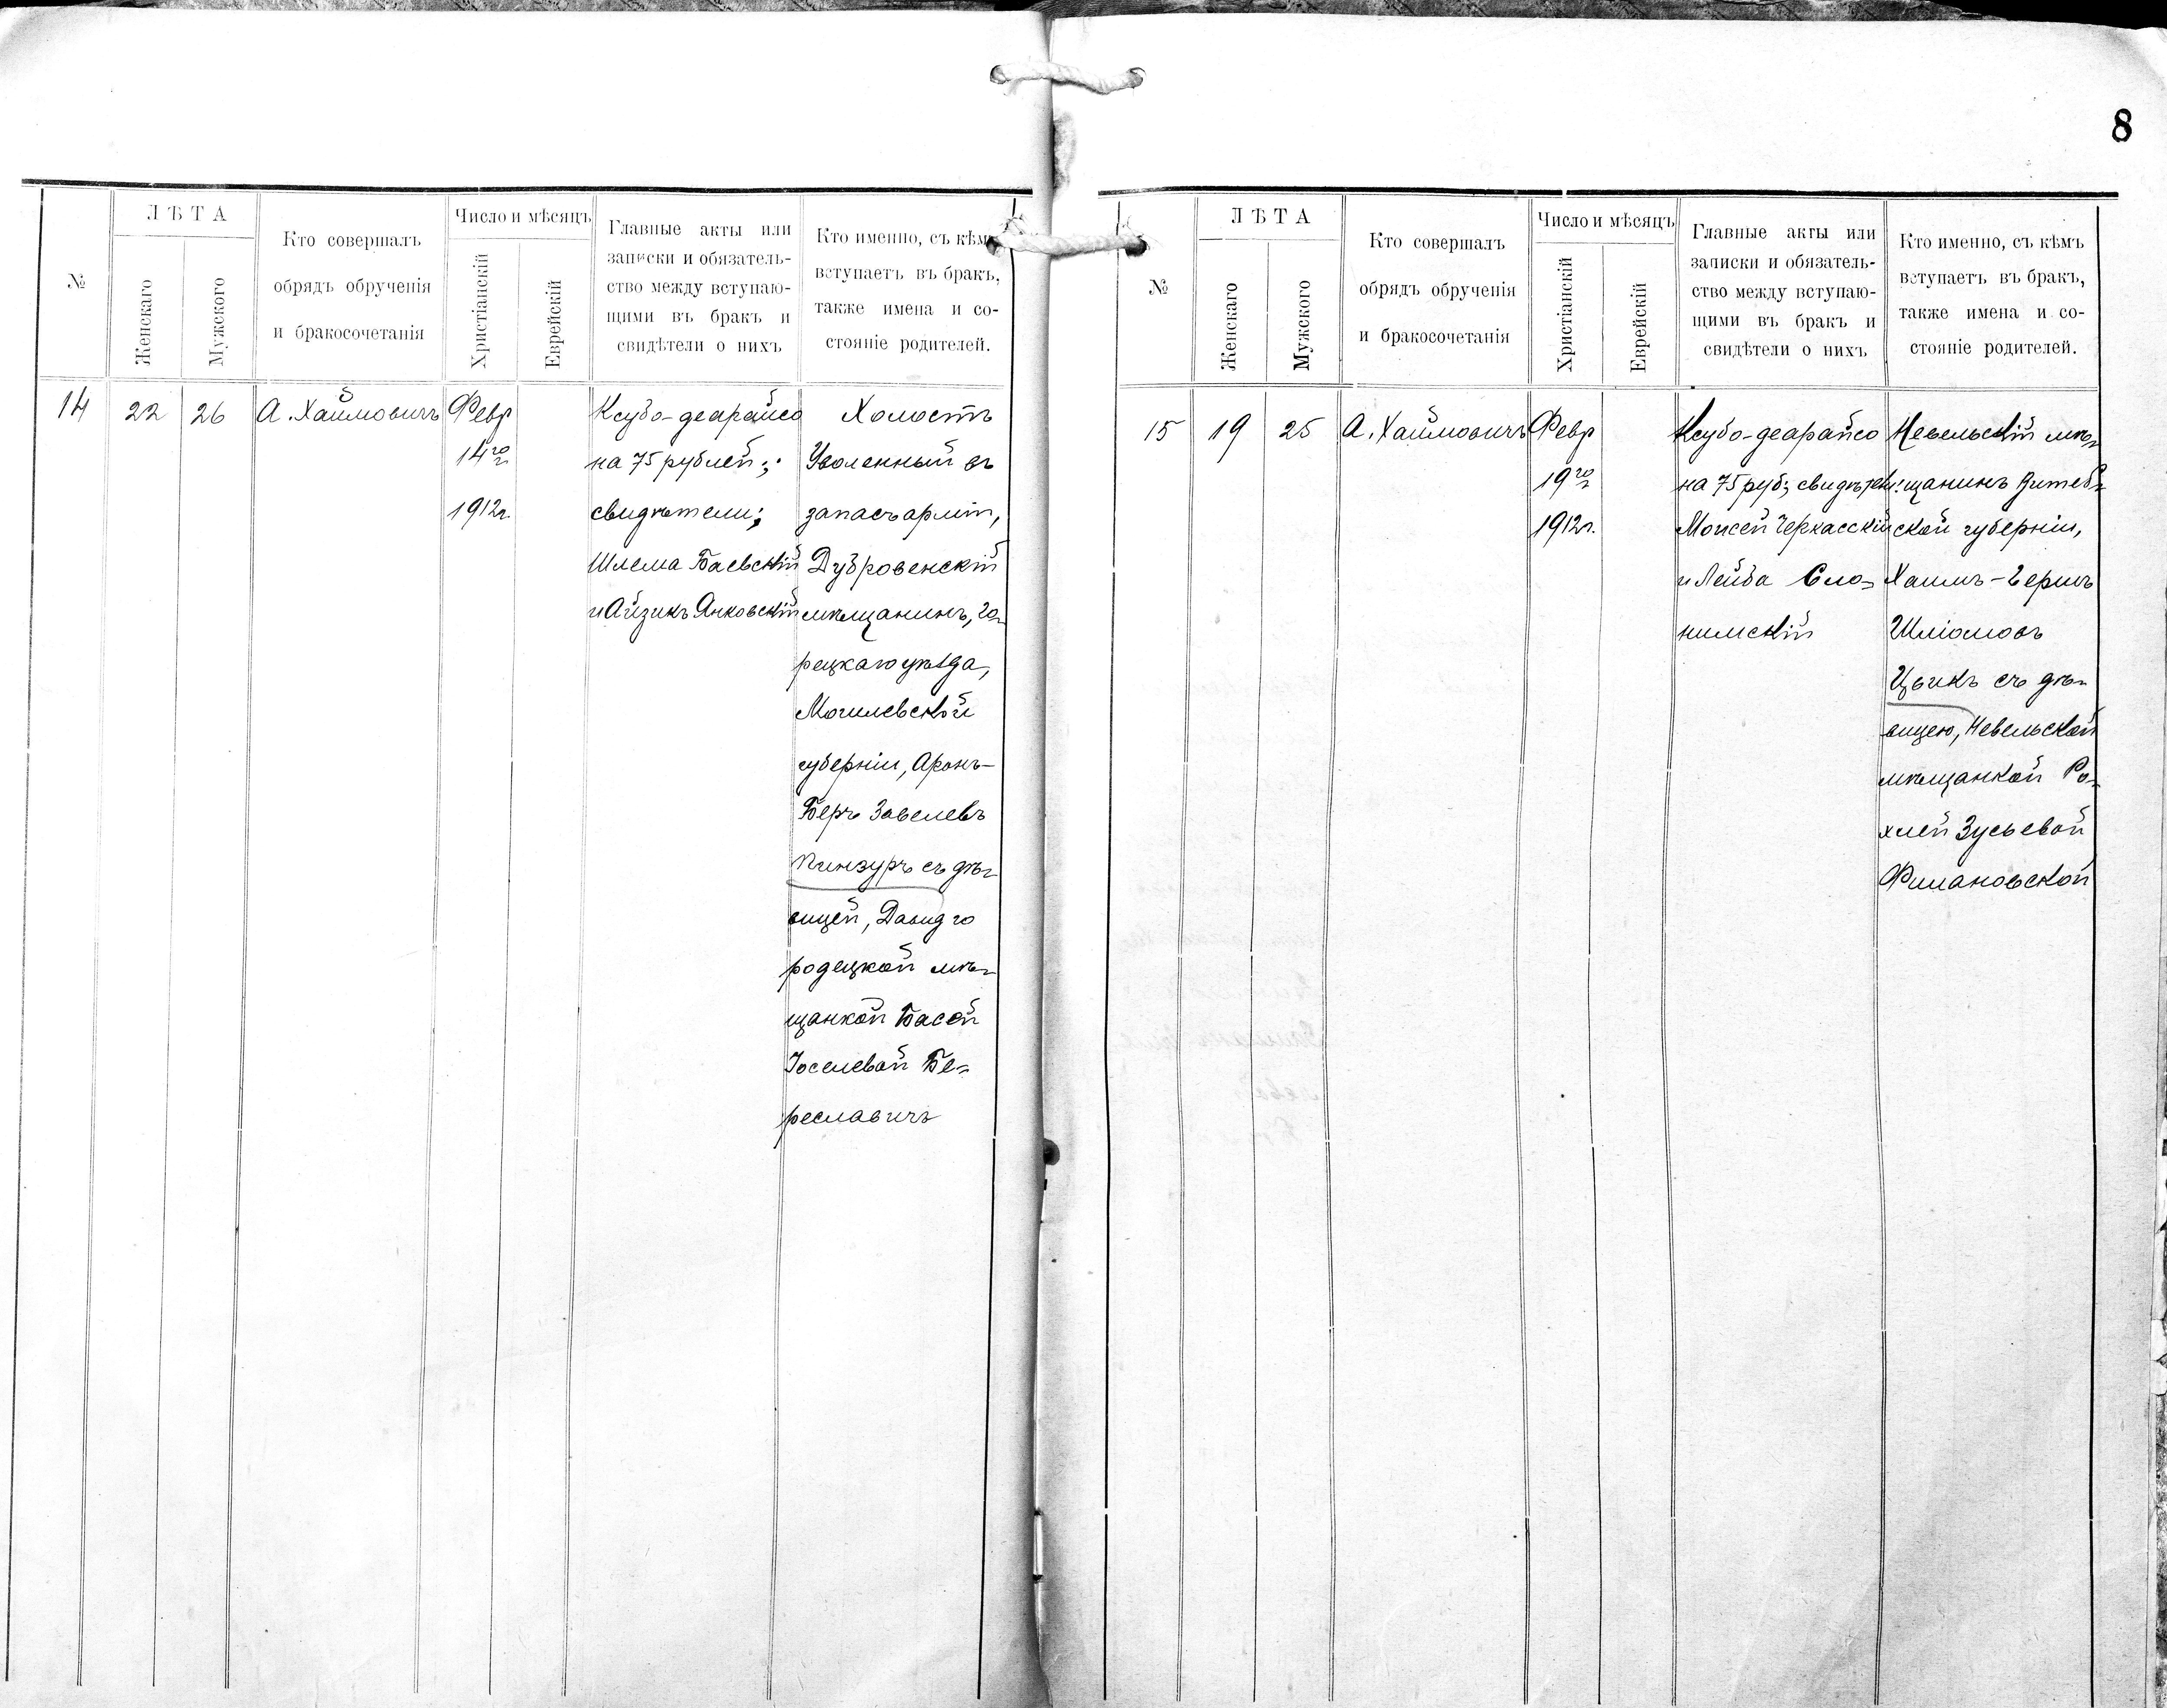 8
№
ЛѢТА
Женскаго
Мужскаго
Кто совершалъ
обрядъ обрученія
и бракосочетанія
Число и мѣсяцъ
Христіанскій
Еврейскій
Главные акты или
записки и обязатель-
ство между вступаю-
щими въ бракъ и
свидѣтели о нихъ
Кто именно, съ кѣмъ
вступаетъ въ бракъ,
также имена и со-
стояніе родителей.
14
22
26
А. Хаймовичъ
Февр
14го
1912г.
Ксубо-деарайсо
на 75 рублей;
свидѣтели;
Шлема Баевскій
и Айзикъ Янковскій
Холостъ
Уволенный въ
запасъ арміи,
Дубровенскій
мѣщанинъ, Го-
рецкаго уѣзда,
Могилевской
губерніи, Аронъ-
Беръ Завелевъ
Пинзуръ съ дѣ-
вицей, Давидго
родецкой мѣ-
щанкой Басей
Іоселевой Бе-
реславичъ
№
ЛѢТА
Женскаго
Мужскаго
Кто совершалъ
обрядъ обрученія
и бракосочетанія
Число и мѣсяцъ
Христіанскій
Еврейскій
Главные акты или
записки и обязатель-
ство между вступаю-
щими въ бракъ и
свидѣтели о нихъ
Кто именно, съ кѣмъ
вступаетъ въ бракъ,
также имена и со-
стояніе родителей.
15
19
25
А. Хаймовичъ
Февр
19го
1912г.
Ксубо-деарайсо
на 75 руб; свидѣтели:
Моисей Черкасскій
и Лейба Сло-
нимскій
Невельскій мѣ-
щанинъ Витеб-
ской губерніи,
Хаимъ-Гершъ
Шліомовъ
Цвикъ съ дѣ-
вицею, Невельской
мѣщанкой Ро-
хлей Зусьевой
Филановской